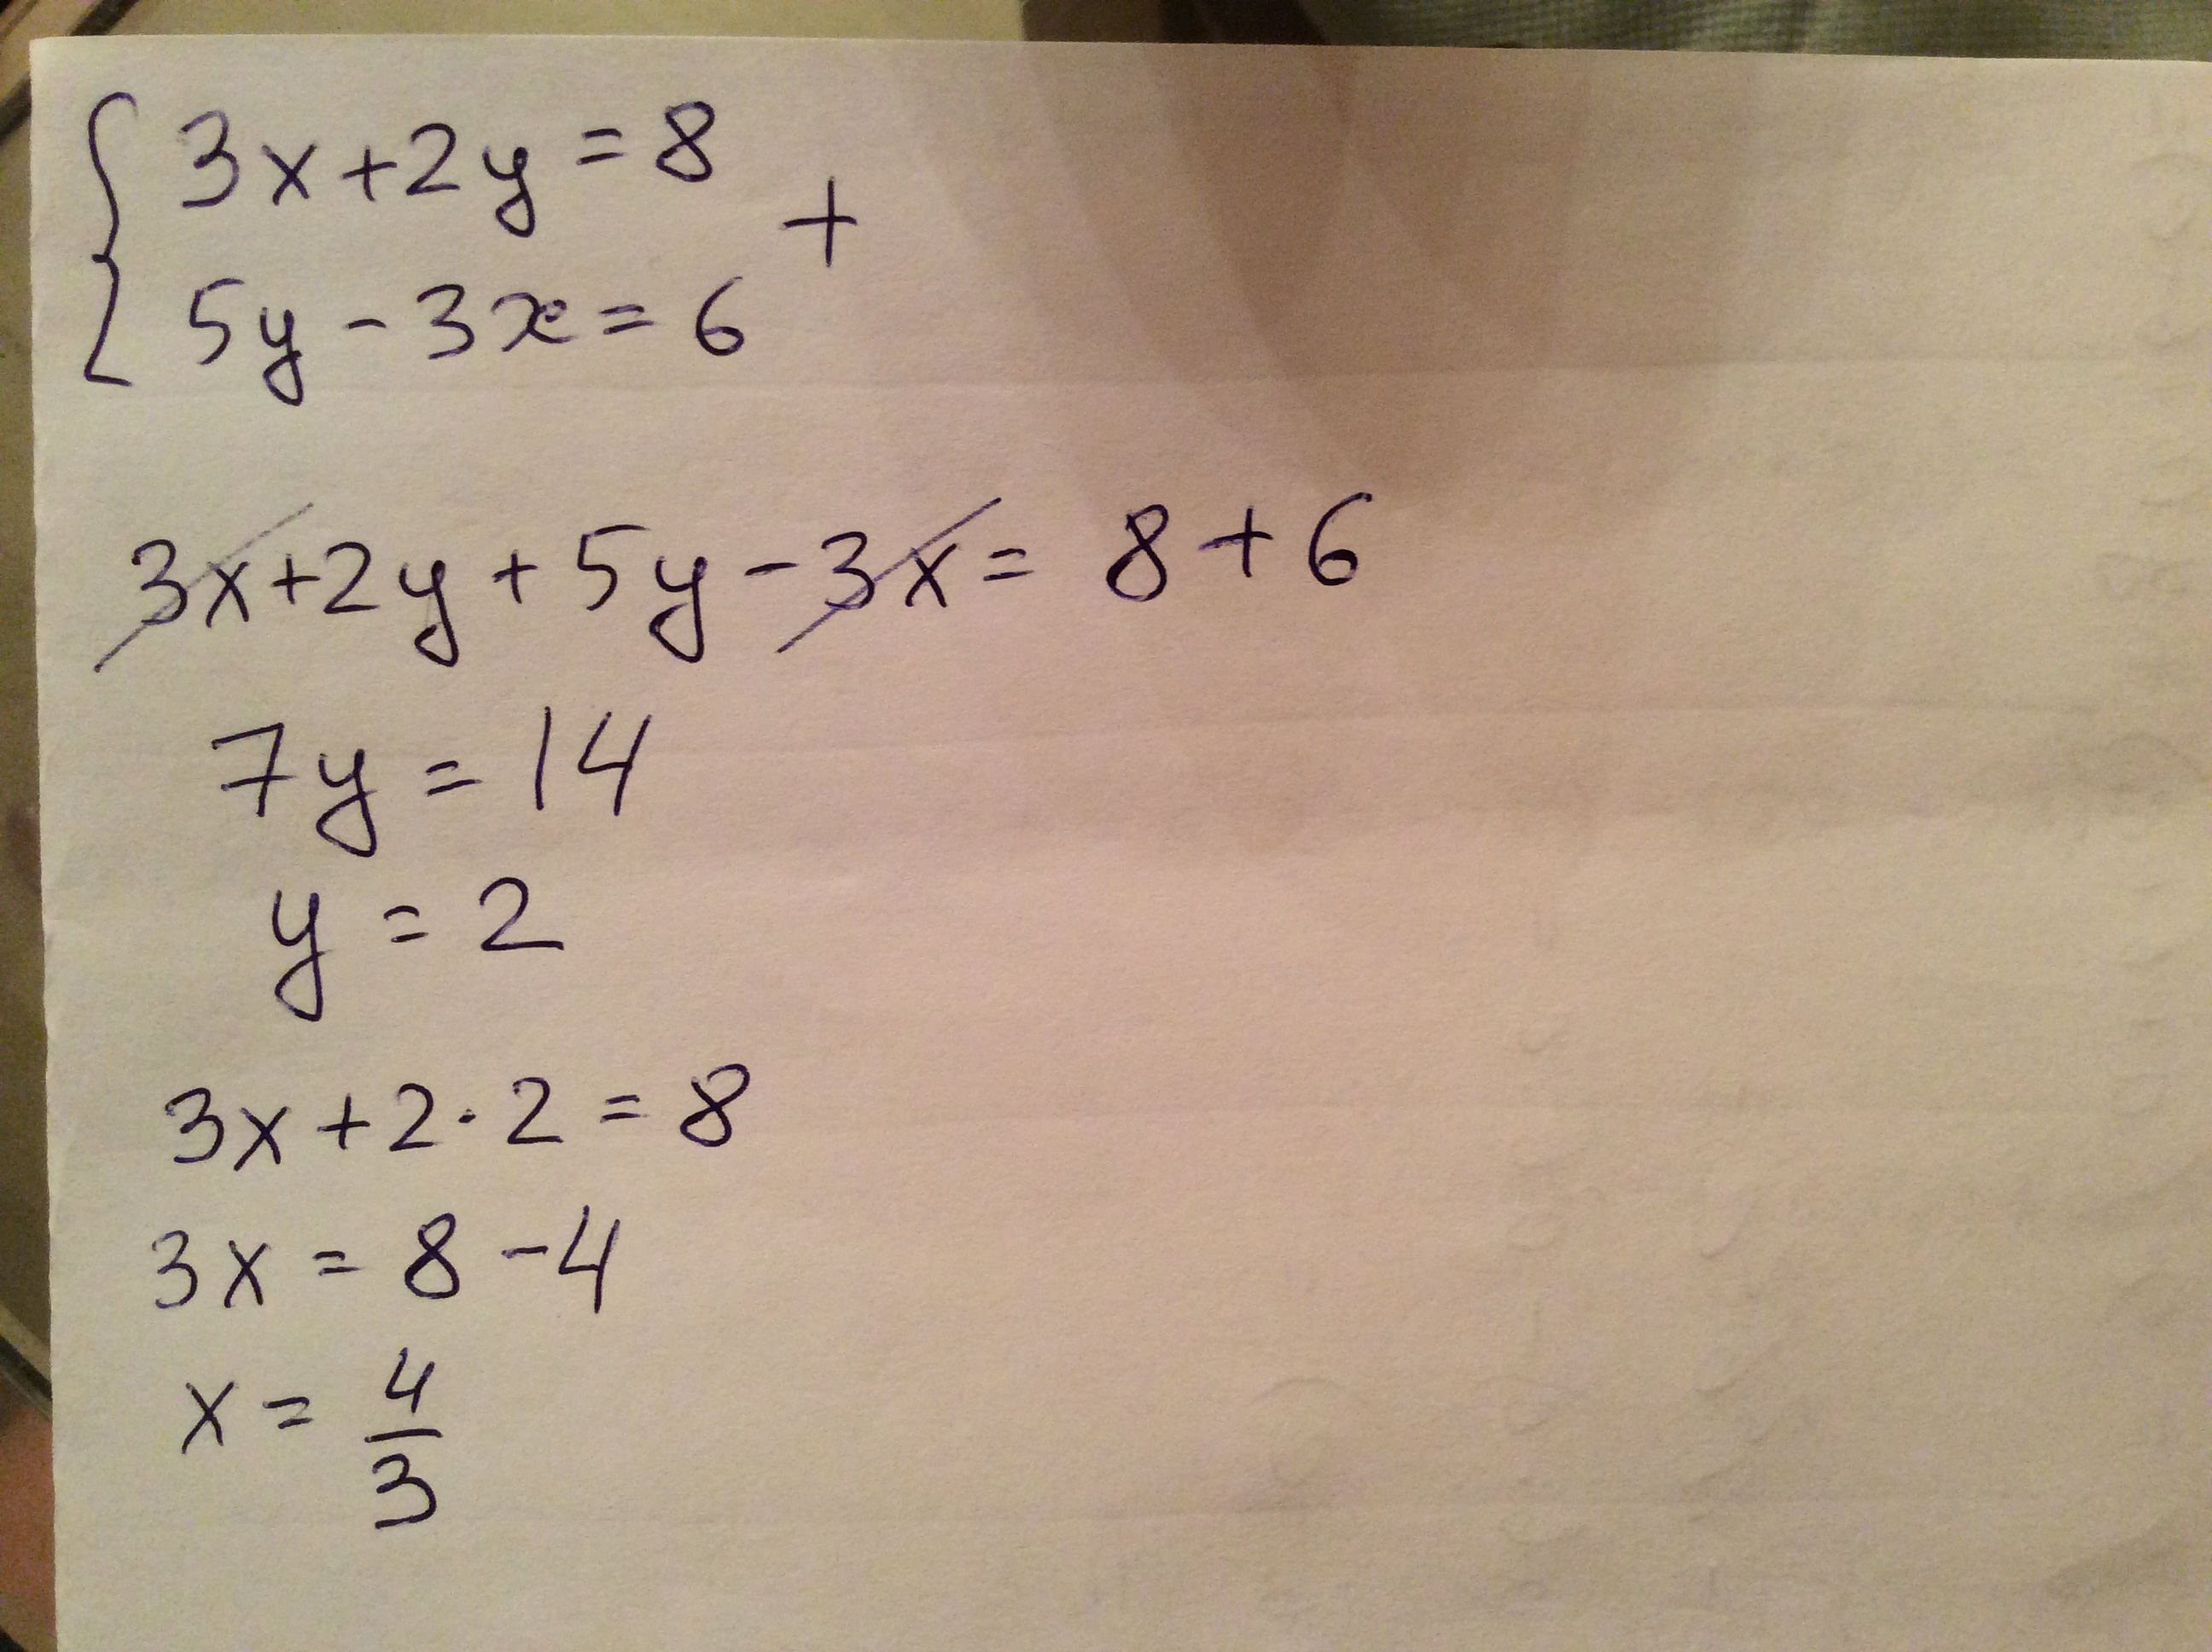 { 3x+2y=8
+
5y-3x=6
3x+2y+5y-3x=8+6
7y=14
y=2
3x+2·2=8
3x=8-4
x=4/3